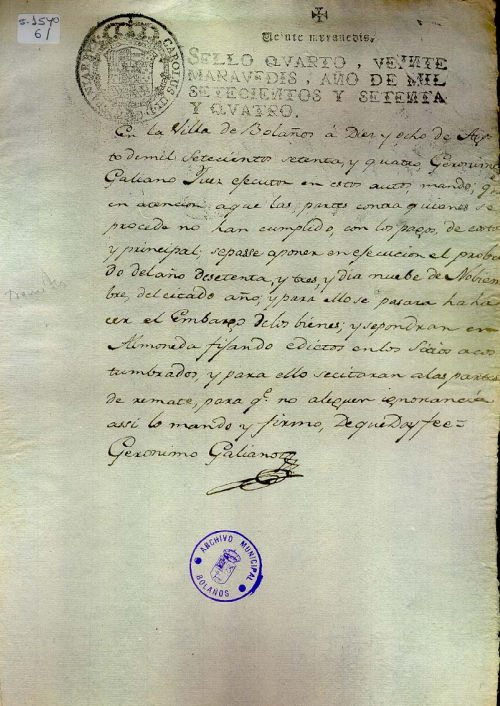 S-1540
6/
Veinte maravedis.
SELLO QVARTO, VEINTE
MARAVEDIS, AÑO DE MIL
SETECIENTOS Y SETENTA
Y QVATRO.
CAROLUS III D G
En la Villa de Bolaños á Diez y ocho de Ags
to de mil Setecientos setenta, y quatro, Geronimo
Galiano Juez ejecutor en estos autos, mando; q.e
en atencion, aque las partes contra quienes se
procede no han cumplido, con los pagos, de costas
y principal; sepasse aponer en ejecucion el probei
do del año desetenta, y tres, y dia nuebe de Nobiem
bre, del citado año, y para ello se pasara ha ha
cer el Embargo delos bienes; y sepondran en
Almoneda fijando edictos en los Sitios acos
tumbrados y para ello secitaran alas partes
de remate, para q.e no aleguen ignorancia
assi lo mando y firmo, De que Doy fee=
Geronimo Galiano
ARCHIVO MUNICIPAL
BOLAÑOS